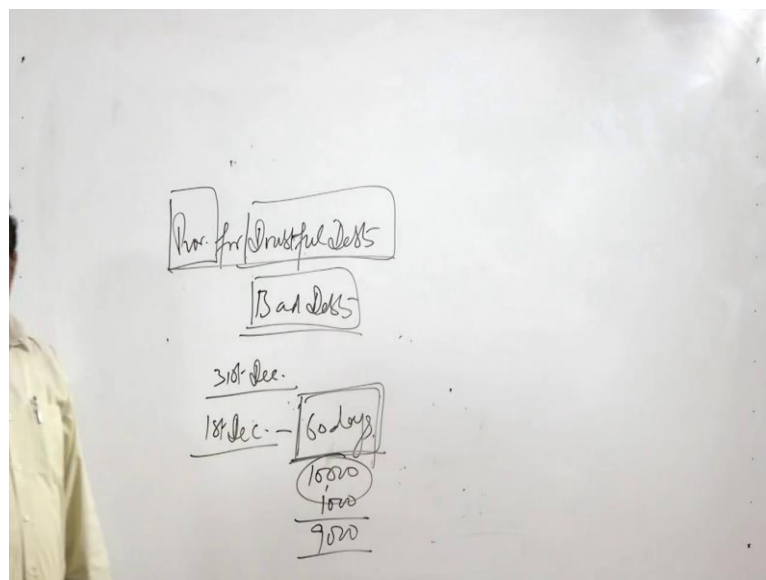 Prov. for Doubtful Debts
Bad Debts
31st Dec.
1st Dec. - 60 days
10000
1000
9000